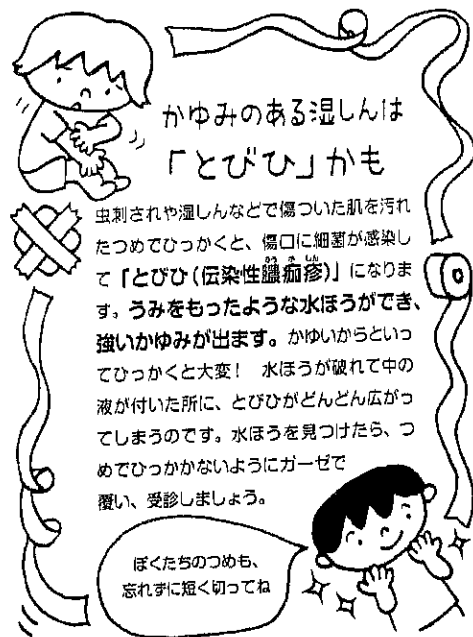 かゆみのある湿しんは
「とびひ」かも
虫刺されや湿しんなどで傷ついた肌を汚れ
たつめでひっかくと、傷口に細菌が感染し
て「とびひ(伝染性膿痂疹)」になりま
す。うみをもったような水ほうができ、
強いかゆみが出ます。かゆいからといっ
てひっかくと大変! 水ほうが破れて中の
液が付いた所に、とびひがどんどん広がっ
てしまうのです。水ほうを見つけたら、つ
めでひっかかないようにガーゼで
覆い、受診しましょう。
ぼくたちのつめも、
忘れずに短く切ってね